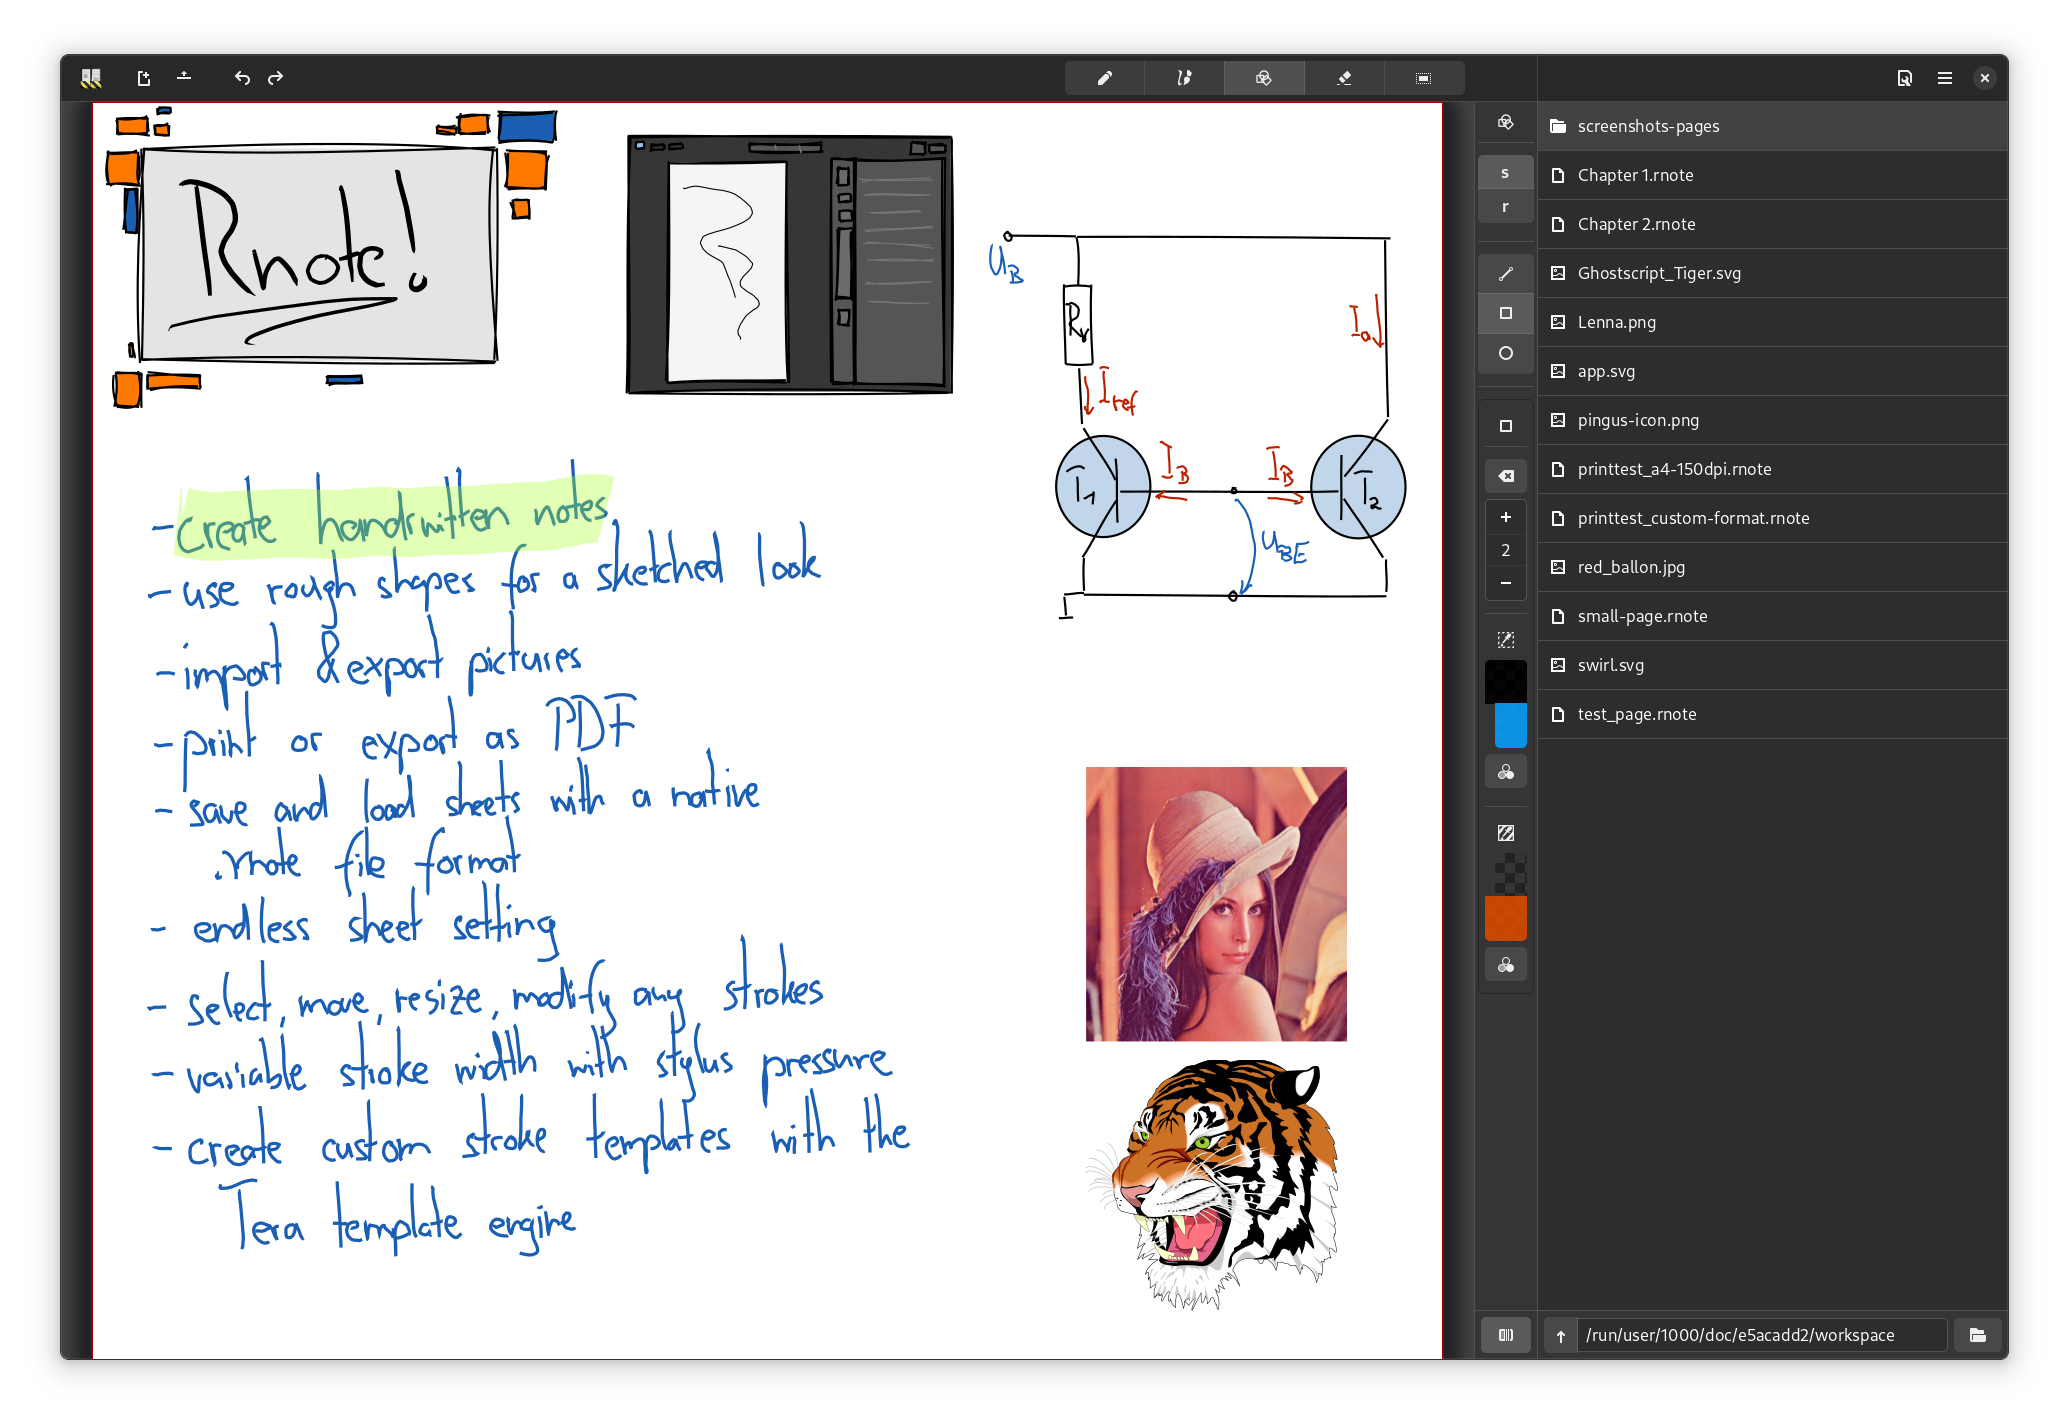 Rnote!
U_B
R_v
I_a
I_ref
T_1
I_B
I_B
T_2
U_BE
- create handwritten notes
- use rough shapes for a sketched look
- import & export pictures
- print or export as PDF
- save and load sheets with a native
.rnote file format
- endless sheet setting
- select, move, resize, modify any strokes
- variable stroke width with stylus pressure
- create custom stroke templates with the
Tera template engine
s
r
+
2
−
screenshots-pages
Chapter 1.rnote
Chapter 2.rnote
Ghostscript_Tiger.svg
Lenna.png
app.svg
pingus-icon.png
printtest_a4-150dpi.rnote
printtest_custom-format.rnote
red_ballon.jpg
small-page.rnote
swirl.svg
test_page.rnote
/run/user/1000/doc/e5acadd2/workspace